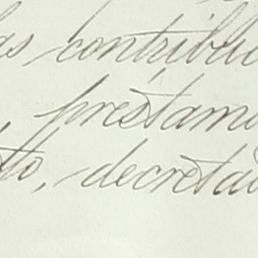 as contribu
, préstamo
to, decreta